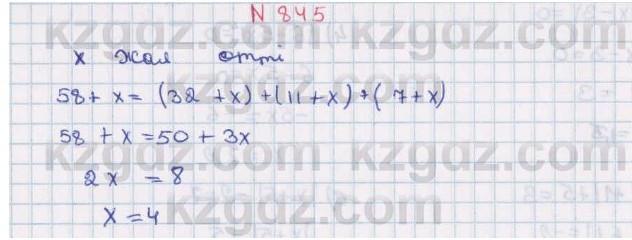 N 845
x жыл өтті
58 + x = (32 + x) + (11 + x) + (7 + x)
58 + x = 50 + 3x
2x = 8
x = 4
kzgdz.com
kzgdz.com
kzgdz.com
kzgdz.com
kzgdz.com
kzgdz.com